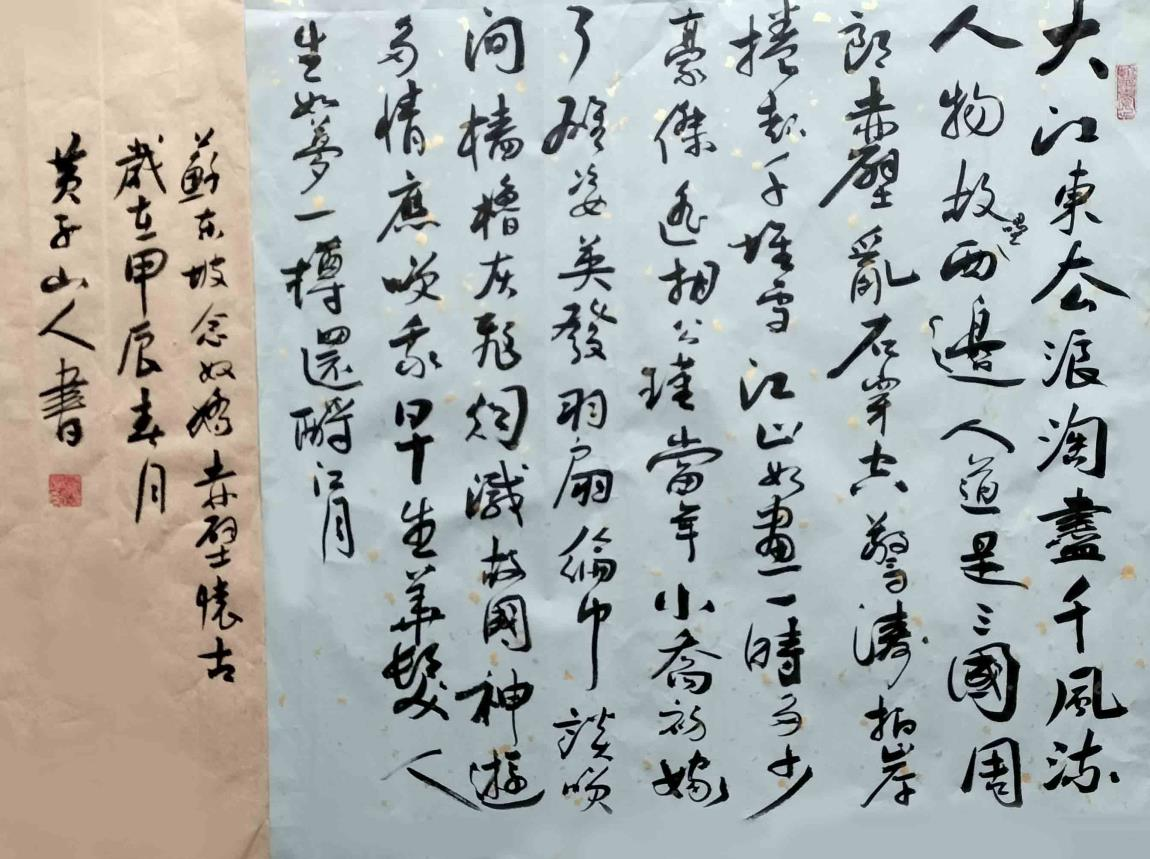 大江東去浪淘盡千風流
人物故壘西邊人道是三國周
郎赤壁亂石穿空驚濤拍岸
捲起千堆雪江山如畫一時多少
豪傑遙想公瑾當年小喬初嫁
了雄姿英發羽扇綸巾談笑
間檣櫓灰飛烟滅故國神遊
多情應笑我早生華髮人
生如夢一樽還酹江月
蘇東坡念奴嬌赤壁懷古
歲在甲辰春月
黄子山人書